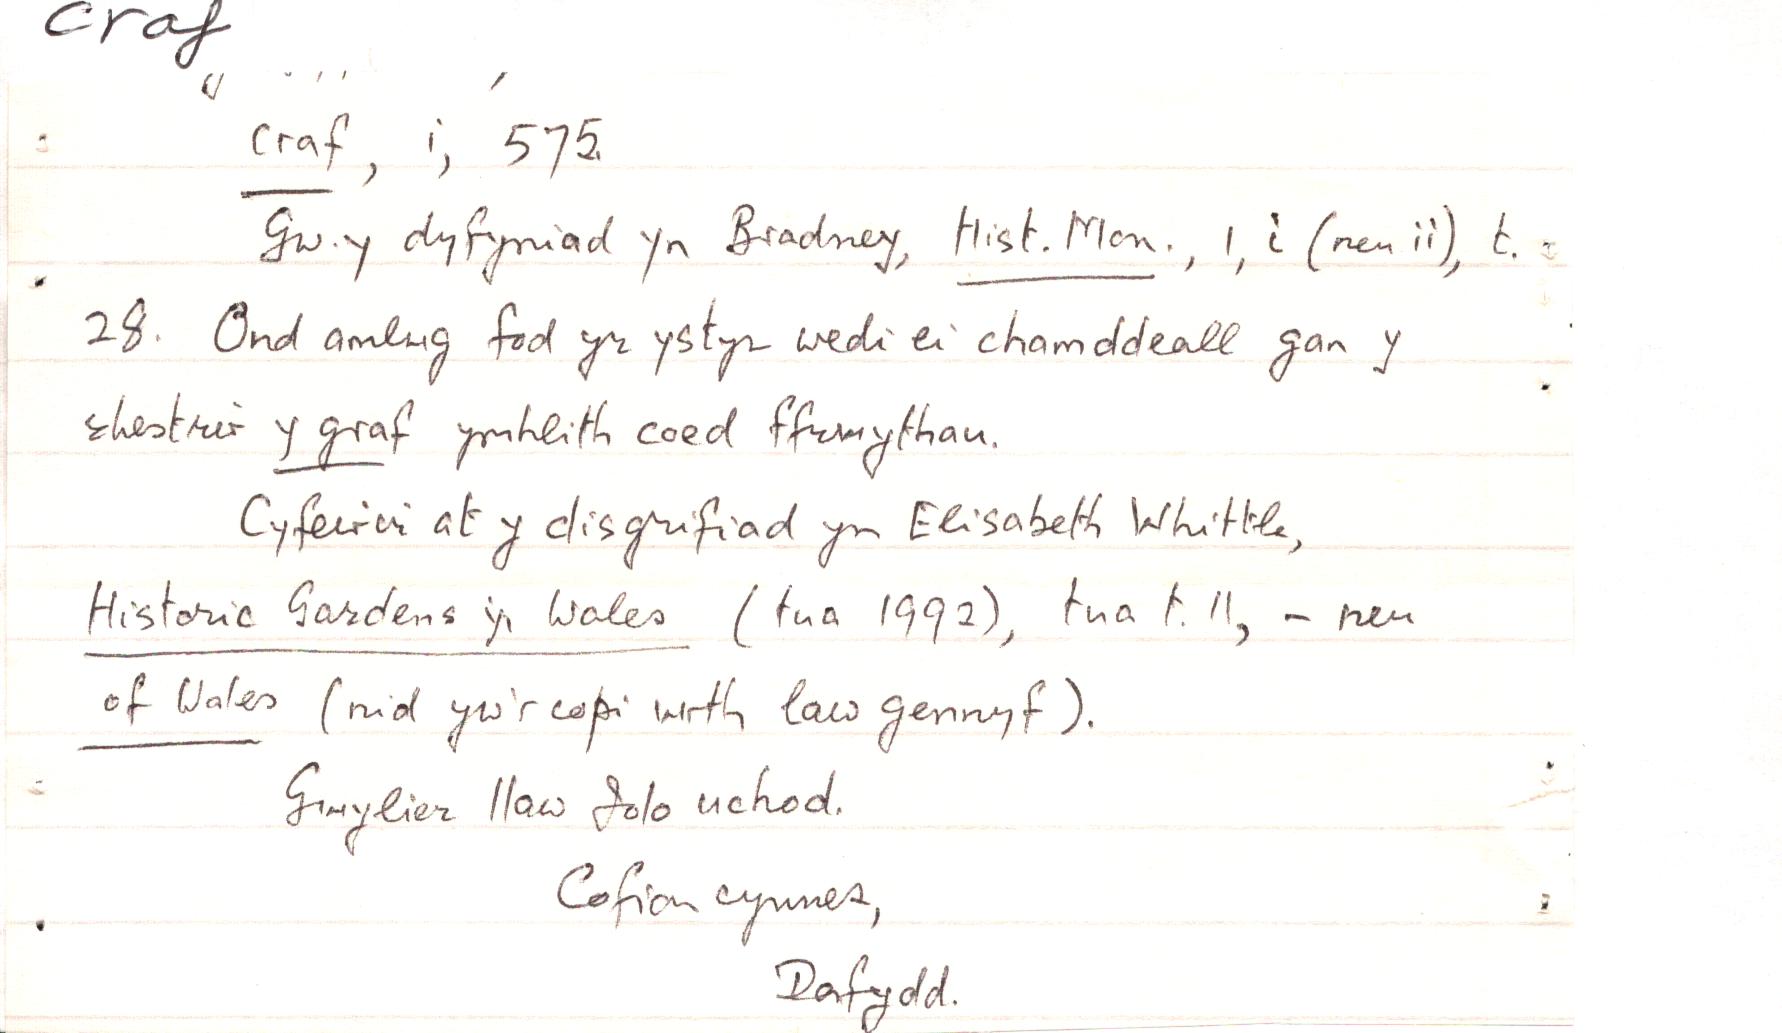 craf
craf, i, 575.
Gw. y dyfyniad yn Bradney, Hist. Mon., 1, i (neu ii), t.
28. Ond amlwg fod yr ystyr wedi ei chamddeall gan y
rhestrir y graf ymhlith coed ffrwythau.
Cyfeirir at y disgrifiad yn Elisabeth Whittle,
Historic Gardens in Wales (tua 1992), tua t. 11, - neu
of Wales (nid yw'r copi wrth law gennyf).
Gwylier llaw Iolo uchod.
Cofion cynnes,
Dafydd.